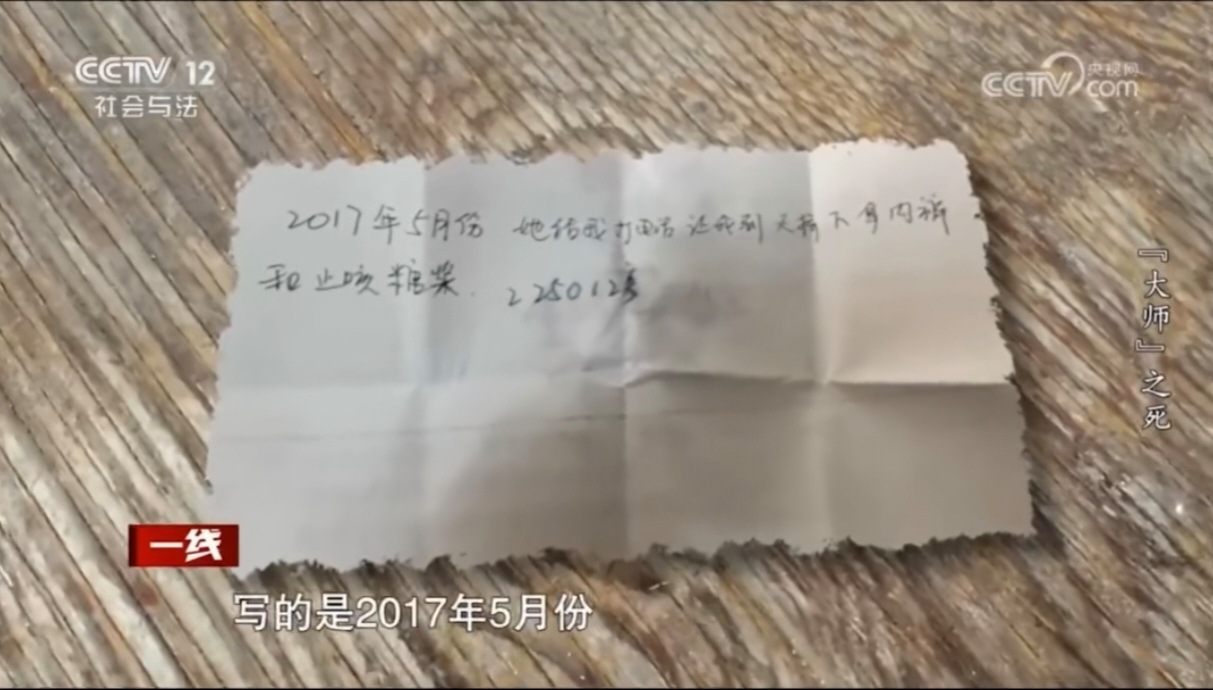 CCTV 12
社会与法
央视网
CCTV com
2017年5月份 她给我打电话让我到天桥下拿内裤
和止咳糖浆. 225012
『大师』之死
一线
写的是2017年5月份